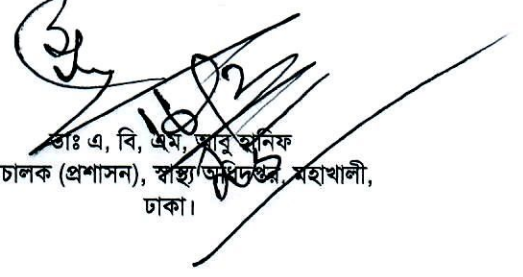 ডাঃ এ, বি, এম, আবু হানিফ
চালক (প্রশাসন), স্বাস্থ্য অধিদপ্তর, মহাখালী,
ঢাকা।